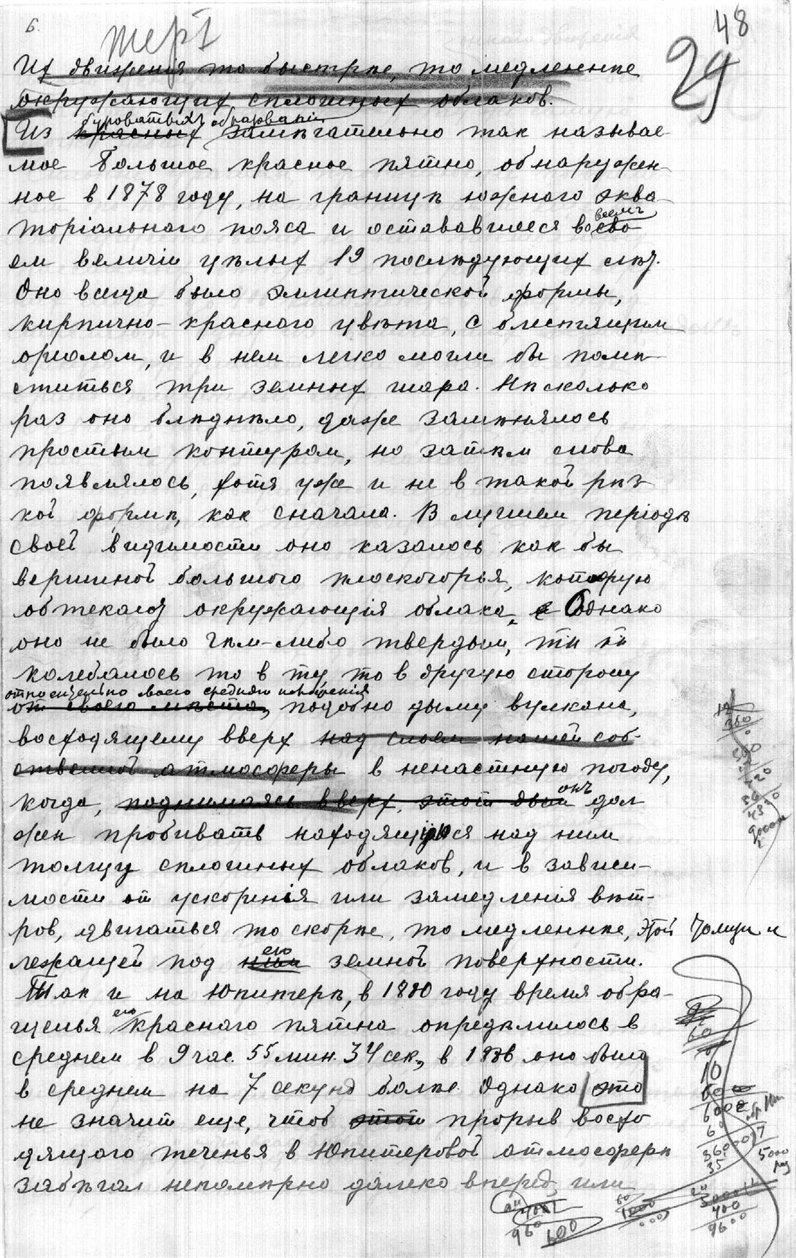 6.
48
29
Их движения то быстрѣе, то медленнѣе
окружающих сплошных облаков.
буроватыхъ образованій
Из красных замѣчательно так называе-
мое большое красное пятно, обнаружен-
ное в 1878 году, на границѣ южного эква-
торіального пояса и остававшееся во своемъ
ем величіи цѣлых 19 послѣдующих лѣт.
Оно всегда было эллиптической формы,
кирпично-красного цвѣта, с блестящим
ореолом, и в нем легко могли бы помѣ-
ститься три земных шара. Нѣсколько
раз оно блѣднѣло, даже замѣнялось
простым контуром, но затѣм снова
появлялось, хотя уже и не в такой рѣз-
кой формѣ, как сначала. В лучшем періодѣ
своей видимости оно казалось как бы
вершиной большого плоскогорья, которую
обтекают окружающія облака. Однако
оно не было чѣм-либо твердым,
колебалось то в ту, то в другую сторону
относительно своего средняго
от своего мѣста, подобно дыму вулкана,
восходящему вверх над слоем нашей соб-
ственной атмосферы в ненастную погоду,
когда, поднимаясь вверх, этот дым онъ дол-
жен пробивать находящуюся над ним
толщу сплошных облаков, и в зависи-
мости от ускоренія или замедленія вѣт-
ров, двигаться то скорѣе, то медленнѣе, этой толщи и
лежащей под нею земной поверхности.
Так и на Юпитерѣ, в 1880 году время обра-
щенья его красного пятна опредѣлилось в
среднем в 9 час. 55 мин. 34 сек., в 1886 оно было
в среднем на 7 секунд болѣе. Однако это
не значит еще, чтоб этот прорыв восхо-
дящого теченья в Юпитеровой атмосферѣ
забѣгал непомѣрно далеко вперед, или